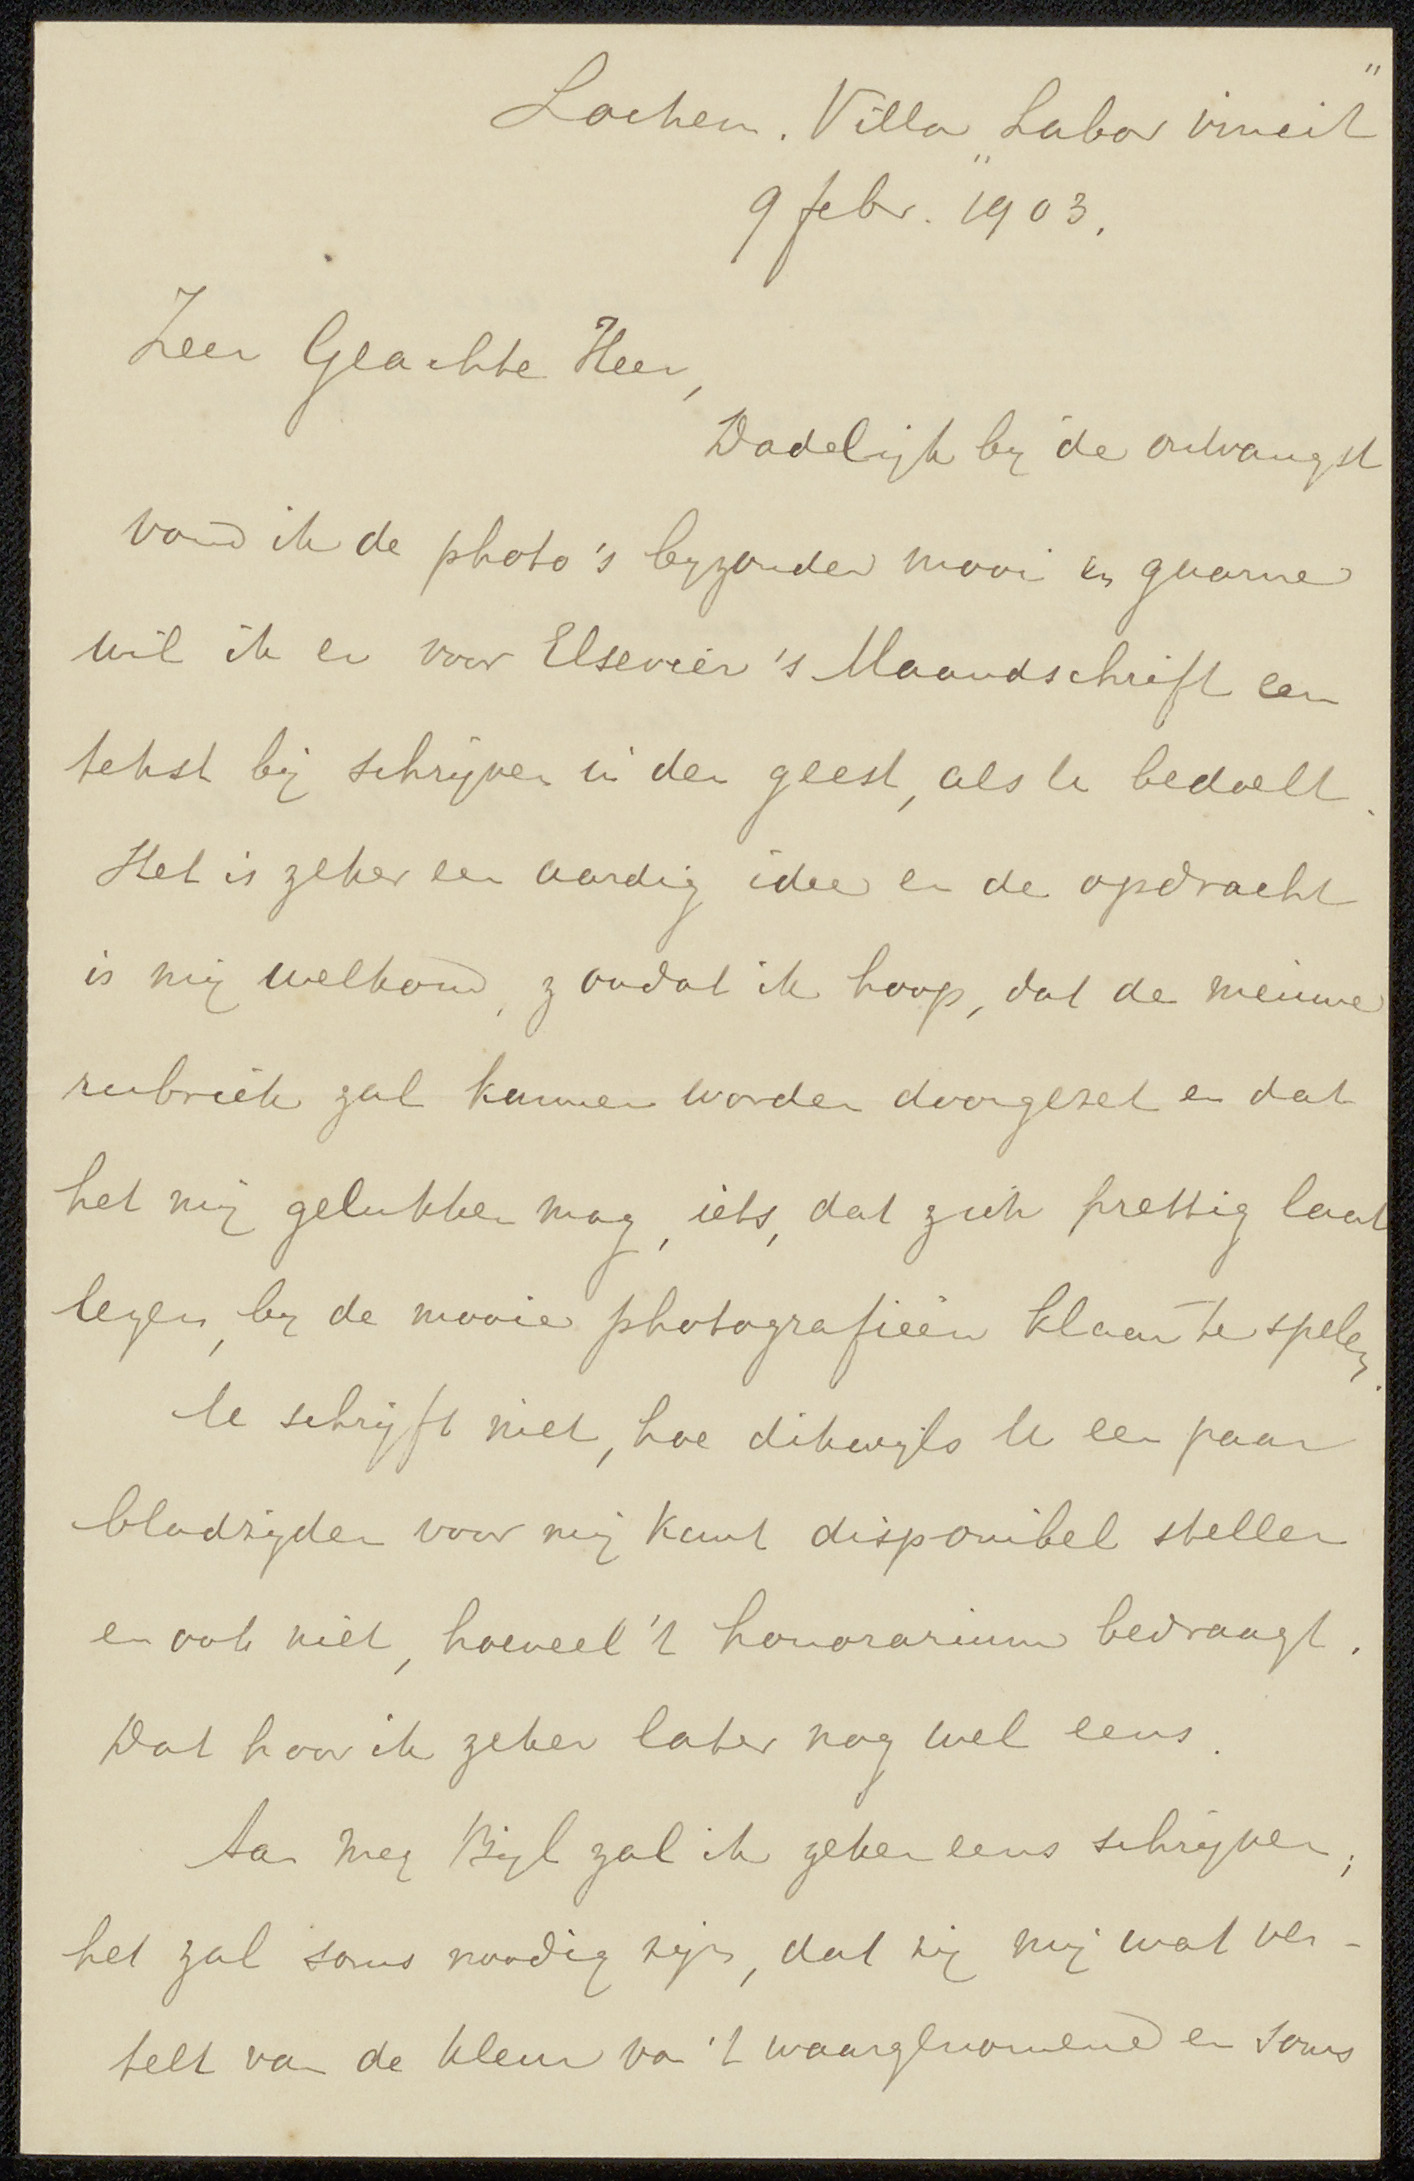 Lochem. Villa „Labor vincit”
9 febr. 1903.
Zeer Geachte Heer,
Dadelijk bij de ontvangst
vond ik de photo's bijzonder mooi en gaarne
wil ik er voor Elsevier's Maandschrift een
tekst bij schrijven in den geest, als U bedoelt.
Het is zeker een aardig idee en de opdracht
is mij welkom, zoodat ik hoop, dat de nieuwe
rubriek zal kunnen worden doorgezet en dat
het mij gelukken mag, iets, dat zich prettig laat
lezen, bij de mooie photografieën klaar te spelen.
U schrijft niet, hoe dikwijls U een paar
bladzijden voor mij kunt disponibel stellen
en ook niet, hoeveel 't honorarium bedraagt.
Dat hoor ik zeker later nog wel eens.
Aan Mej Bijl zal ik zeker eens schrijven;
het zal soms noodig zijn, dat zij mij wat ver-
telt van de kleur van 't waargenomene en soms